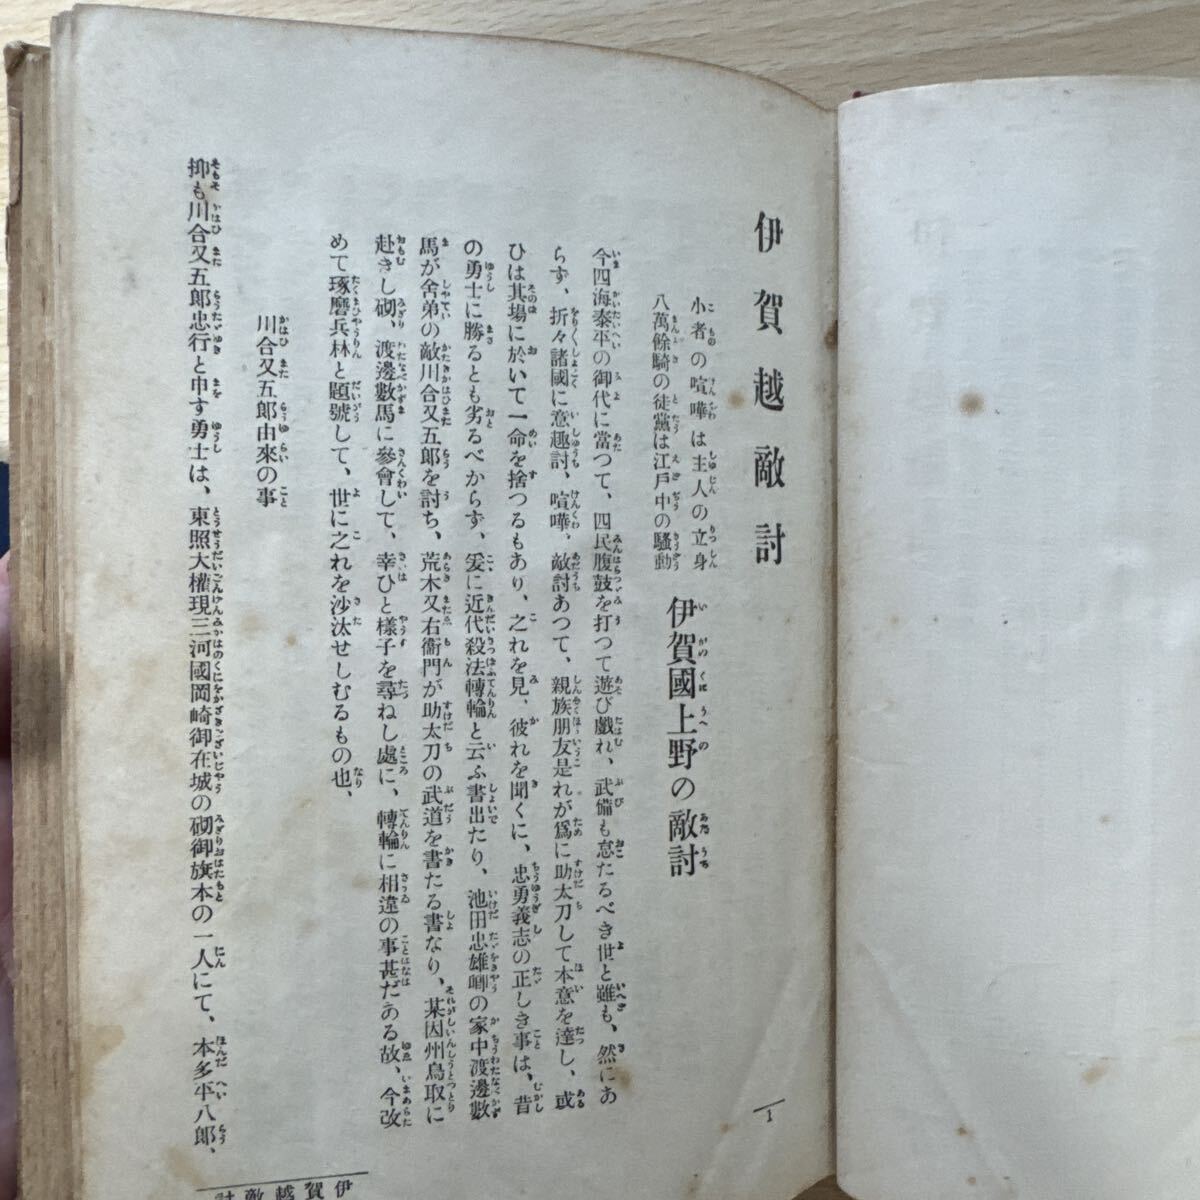 伊賀越敵討
小者の喧嘩は主人の立身
八萬餘騎の徒黨は江戸中の騷動
伊賀國上野の敵討
今四海泰平の御代に當つて、四民腹鼓を打つて遊び戲れ、武備も怠たるべき世と雖も、然にあ
らず、折々諸國に意趣討、喧嘩、敵討あつて、親族朋友是れが爲に助太刀して本意を達し、或
ひは其場に於いて一命を捨つるもあり、之れを見、彼れを聞くに、忠勇義志の正しき事は、昔
の勇士に勝るとも劣るべからず、爰に近代殺法轉輪と云ふ書出たり、池田忠雄卿の家中渡邊數
馬が舍弟の敵川合又五郎を討ち、荒木又右衞門が助太刀の武道を書たる書なり、某因州鳥取に
赴きし砌、渡邊數馬に參會して、幸ひと樣子を尋ねし處に、轉輪に相違の事甚だある故、今改
めて琢磨兵林と題號して、世に之れを沙汰せしむるもの也、
川合又五郎由來の事
抑も川合又五郎忠行と申す勇士は、東照大權現三河國岡崎御在城の砌御旗本の一人にて、本多平八郎、
伊賀越敵討
1